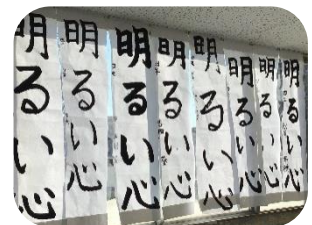 明るい心
明るい心
明るい心
明るい心
明るい心
明るい心
明るい心
明るい心